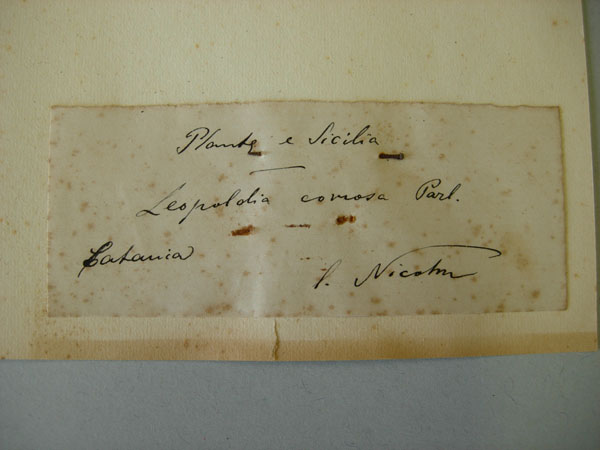 Plantæ e Sicilia
Leopoldia comosa Parl.
Catania